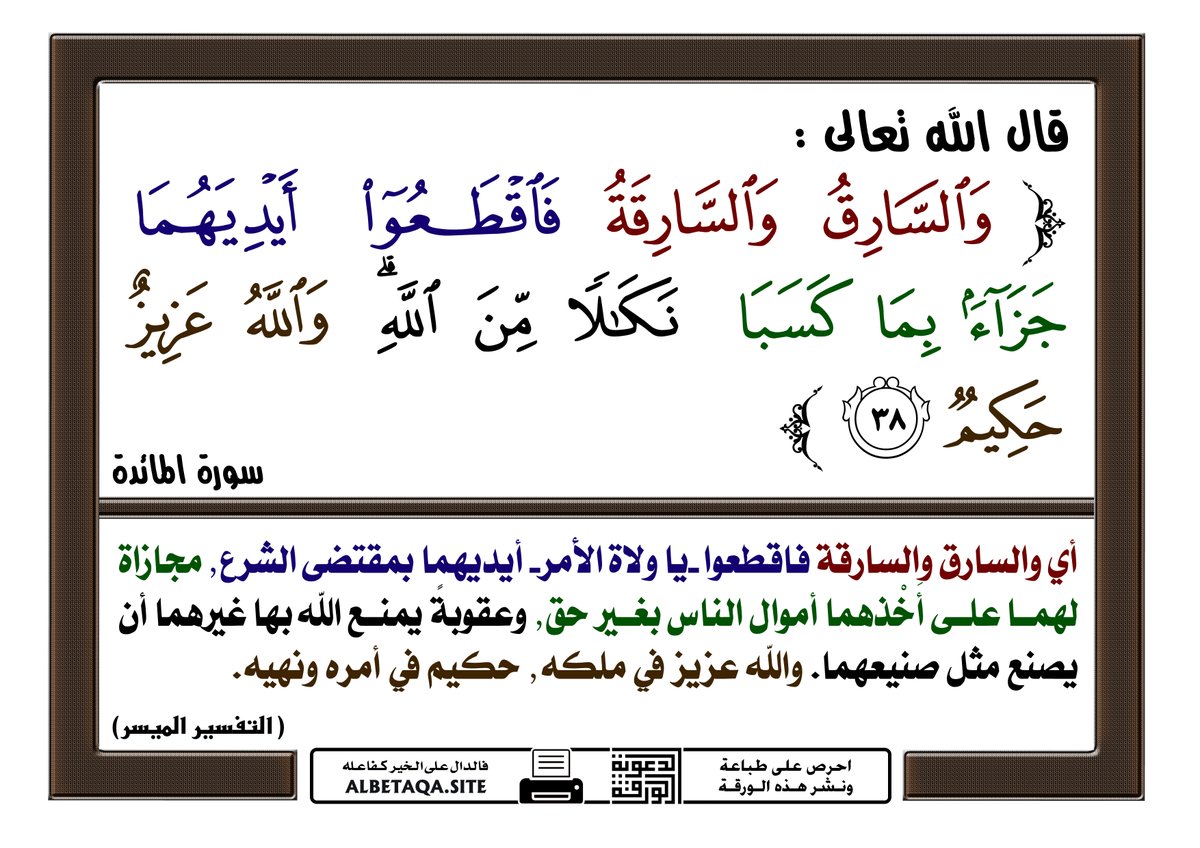 قال الله تعالى :
﴿ وَٱلسَّارِقُ وَٱلسَّارِقَةُ فَٱقۡطَعُوٓاْ أَيۡدِيَهُمَا
جَزَآءَۢ بِمَا كَسَبَا نَكَٰلٗا مِّنَ ٱللَّهِۗ وَٱللَّهُ عَزِيزٌ
حَكِيمٞ ٣٨ ﴾
سورة المائدة
أي والسارق والسارقة فاقطعوا -يا ولاة الأمر- أيديهما بمقتضى الشرع, مجازاة
لهما على أَخْذهما أموال الناس بغير حق, وعقوبةً يمنع الله بها غيرهما أن
يصنع مثل صنيعهما. والله عزيز في ملكه, حكيم في أمره ونهيه.
(التفسير الميسر)
احرص على طباعة
ونشر هذه الورقة
الدعوية
الورقة
فالدال على الخير كفاعله
ALBETAQA.SITE